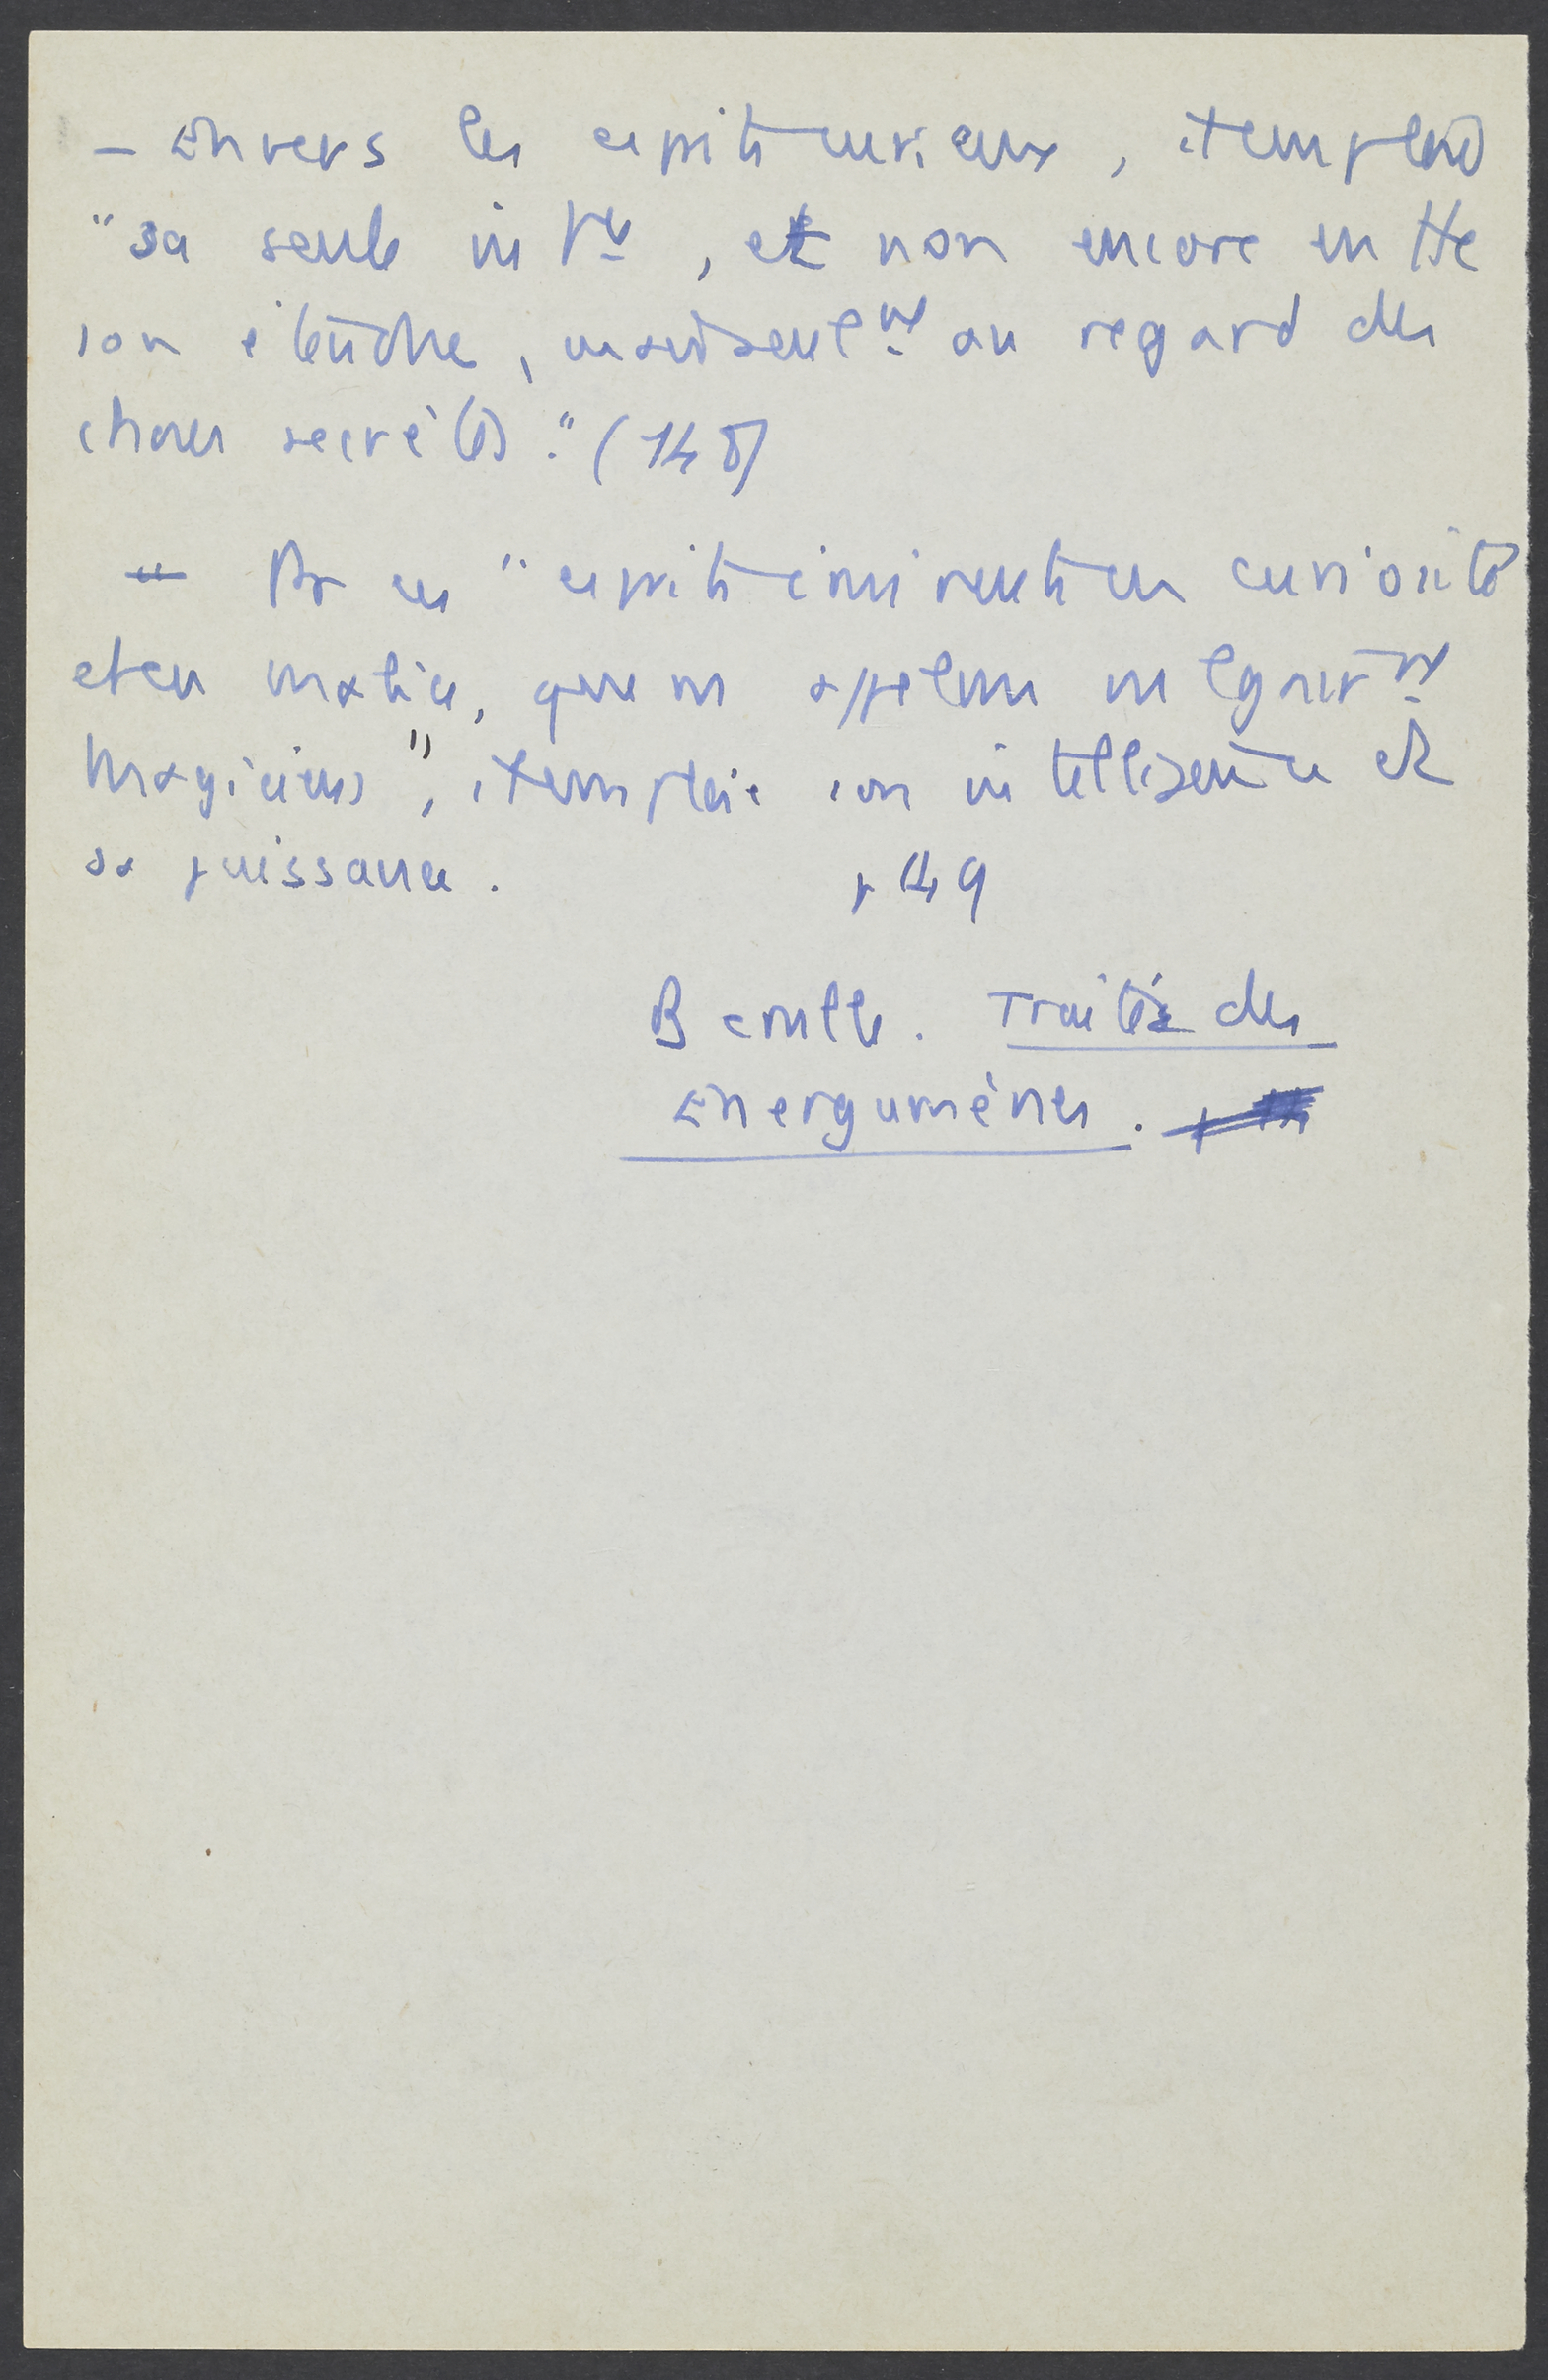 - Envers les esprits curieux, il emploie
"sa seule intce, et non encore en tte
son étendue, mais seult au regard des
choses secrètes." (148)
- Pr ces "esprits éminents en curiosité
et en malice, que ns appelons vulgairt
magiciens", il emploie son intelligence et
sa puissance. p 149
Berulle. Traité des
Energumènes.